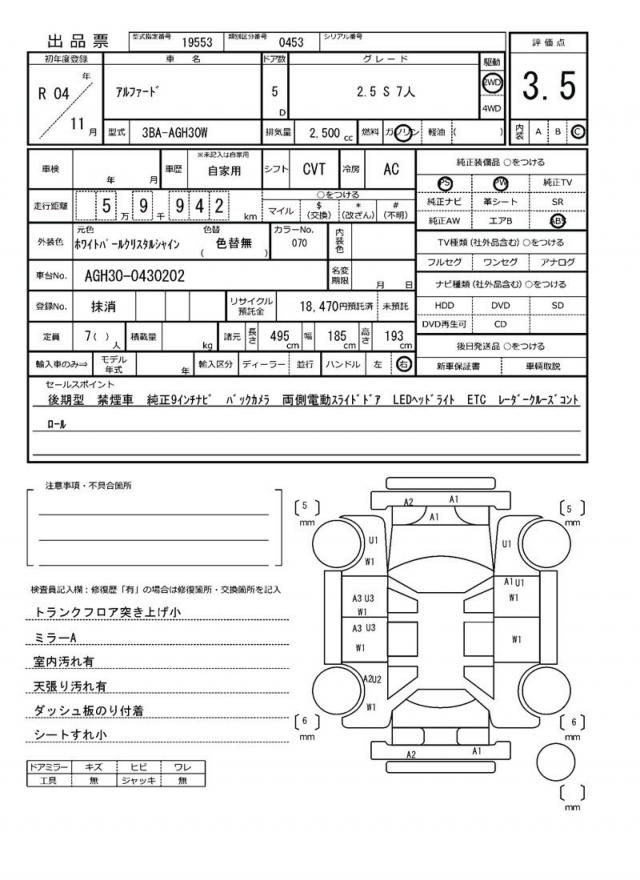 出品票 型式指定番号 19553 類別区分番号 0453 シリアル番号
初年度登録 車名 ドア数 グレード 駆動 評価点
R 04 年 11 月 アルファード 5 D 2.5 S 7人 2WD 4WD 3.5
型式 3BA-AGH30W 排気量 2,500 cc 燃料 ガソリン 軽油 ( ) 内装 A B C
車検 年 月 車歴 ※未記入は自家用 自家用 シフト CVT 冷房 AC 純正装備品 ○をつける
PS PW 純正TV
走行距離 5 万 9 千 9 4 2 km ○をつける マイル $(交換) *(改ざん) #(不明) 純正ナビ 革シート SR
純正AW エアB ABS
外装色 元色 ホワイトパールクリスタルシャイン 色替 ( 色替無 ) カラーNo. 070 内装色 TV種類 (社外品含む) ○をつける
フルセグ ワンセグ アナログ
車台No. AGH30-0430202 名変期限 月 日 ナビ種類 (社外品含む) ○をつける
登録No. 抹消 リサイクル預託金 18,470円預託済 未預託 HDD DVD SD
DVD再生可 CD
定員 7( ) 人 積載量 kg 諸元 長さ 495 cm 幅 185 cm 高さ 193 cm 後日発送品 ○をつける
輸入車のみ⇒ モデル年式 年 輸入区分 ディーラー 並行 ハンドル 左 右 新車保証書 車輌取説
セールスポイント
後期型 禁煙車 純正9インチナビ バックカメラ 両側電動スライドドア LEDヘッドライト ETC レーダークルーズコント
ロール
注意事項・不具合箇所
検査員記入欄：修復歴「有」の場合は修復箇所・交換箇所を記入
トランクフロア突き上げ小
ミラーA
室内汚れ有
天張り汚れ有
ダッシュ板のり付着
シートすれ小
ドアミラー キズ ヒビ ワレ
工具 無 ジャッキ 無
A2 A1
A1
5 mm
5 mm
U1 W1
U1
A3 U3 W1
A1 U1 W1
A3 U3 W1
W1
A2U2 W1
6 mm
6 mm
A2 A1
mm